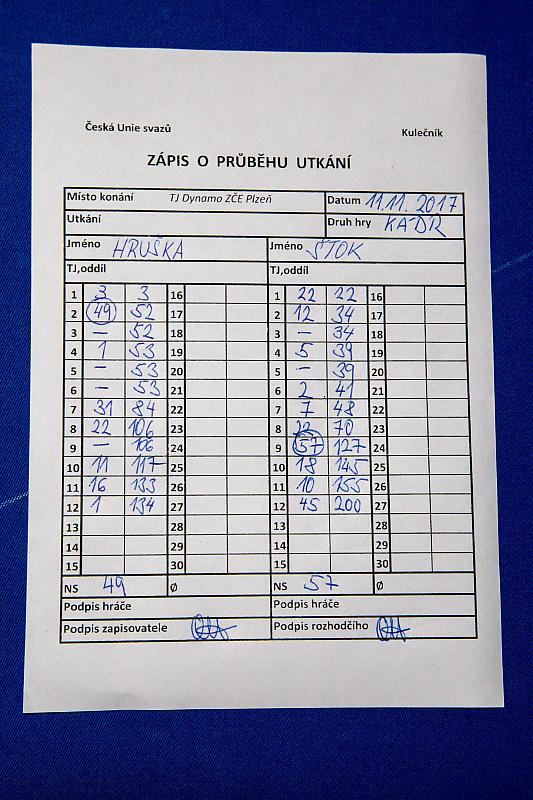 Česká Unie svazů Kulečník
ZÁPIS O PRŮBĚHU UTKÁNÍ
Místo konání TJ Dynamo ZČE Plzeň Datum 11.11. 2017
Utkání Druh hry KÁDR
Jméno HRUŠKA Jméno ŠTOK
TJ,oddíl TJ,oddíl
1 3 3 16 1 22 22 16
2 49 52 17 2 12 34 17
3 — 52 18 3 — 34 18
4 1 53 19 4 5 39 19
5 — 53 20 5 — 39 20
6 — 53 21 6 2 41 21
7 31 84 22 7 7 48 22
8 22 106 23 8 22 70 23
9 — 106 24 9 57 127 24
10 11 117 25 10 18 145 25
11 16 133 26 11 10 155 26
12 1 134 27 12 45 200 27
13 28 13 28
14 29 14 29
15 30 15 30
NS 49 Ø NS 57 Ø
Podpis hráče Podpis hráče
Podpis zapisovatele Podpis rozhodčího